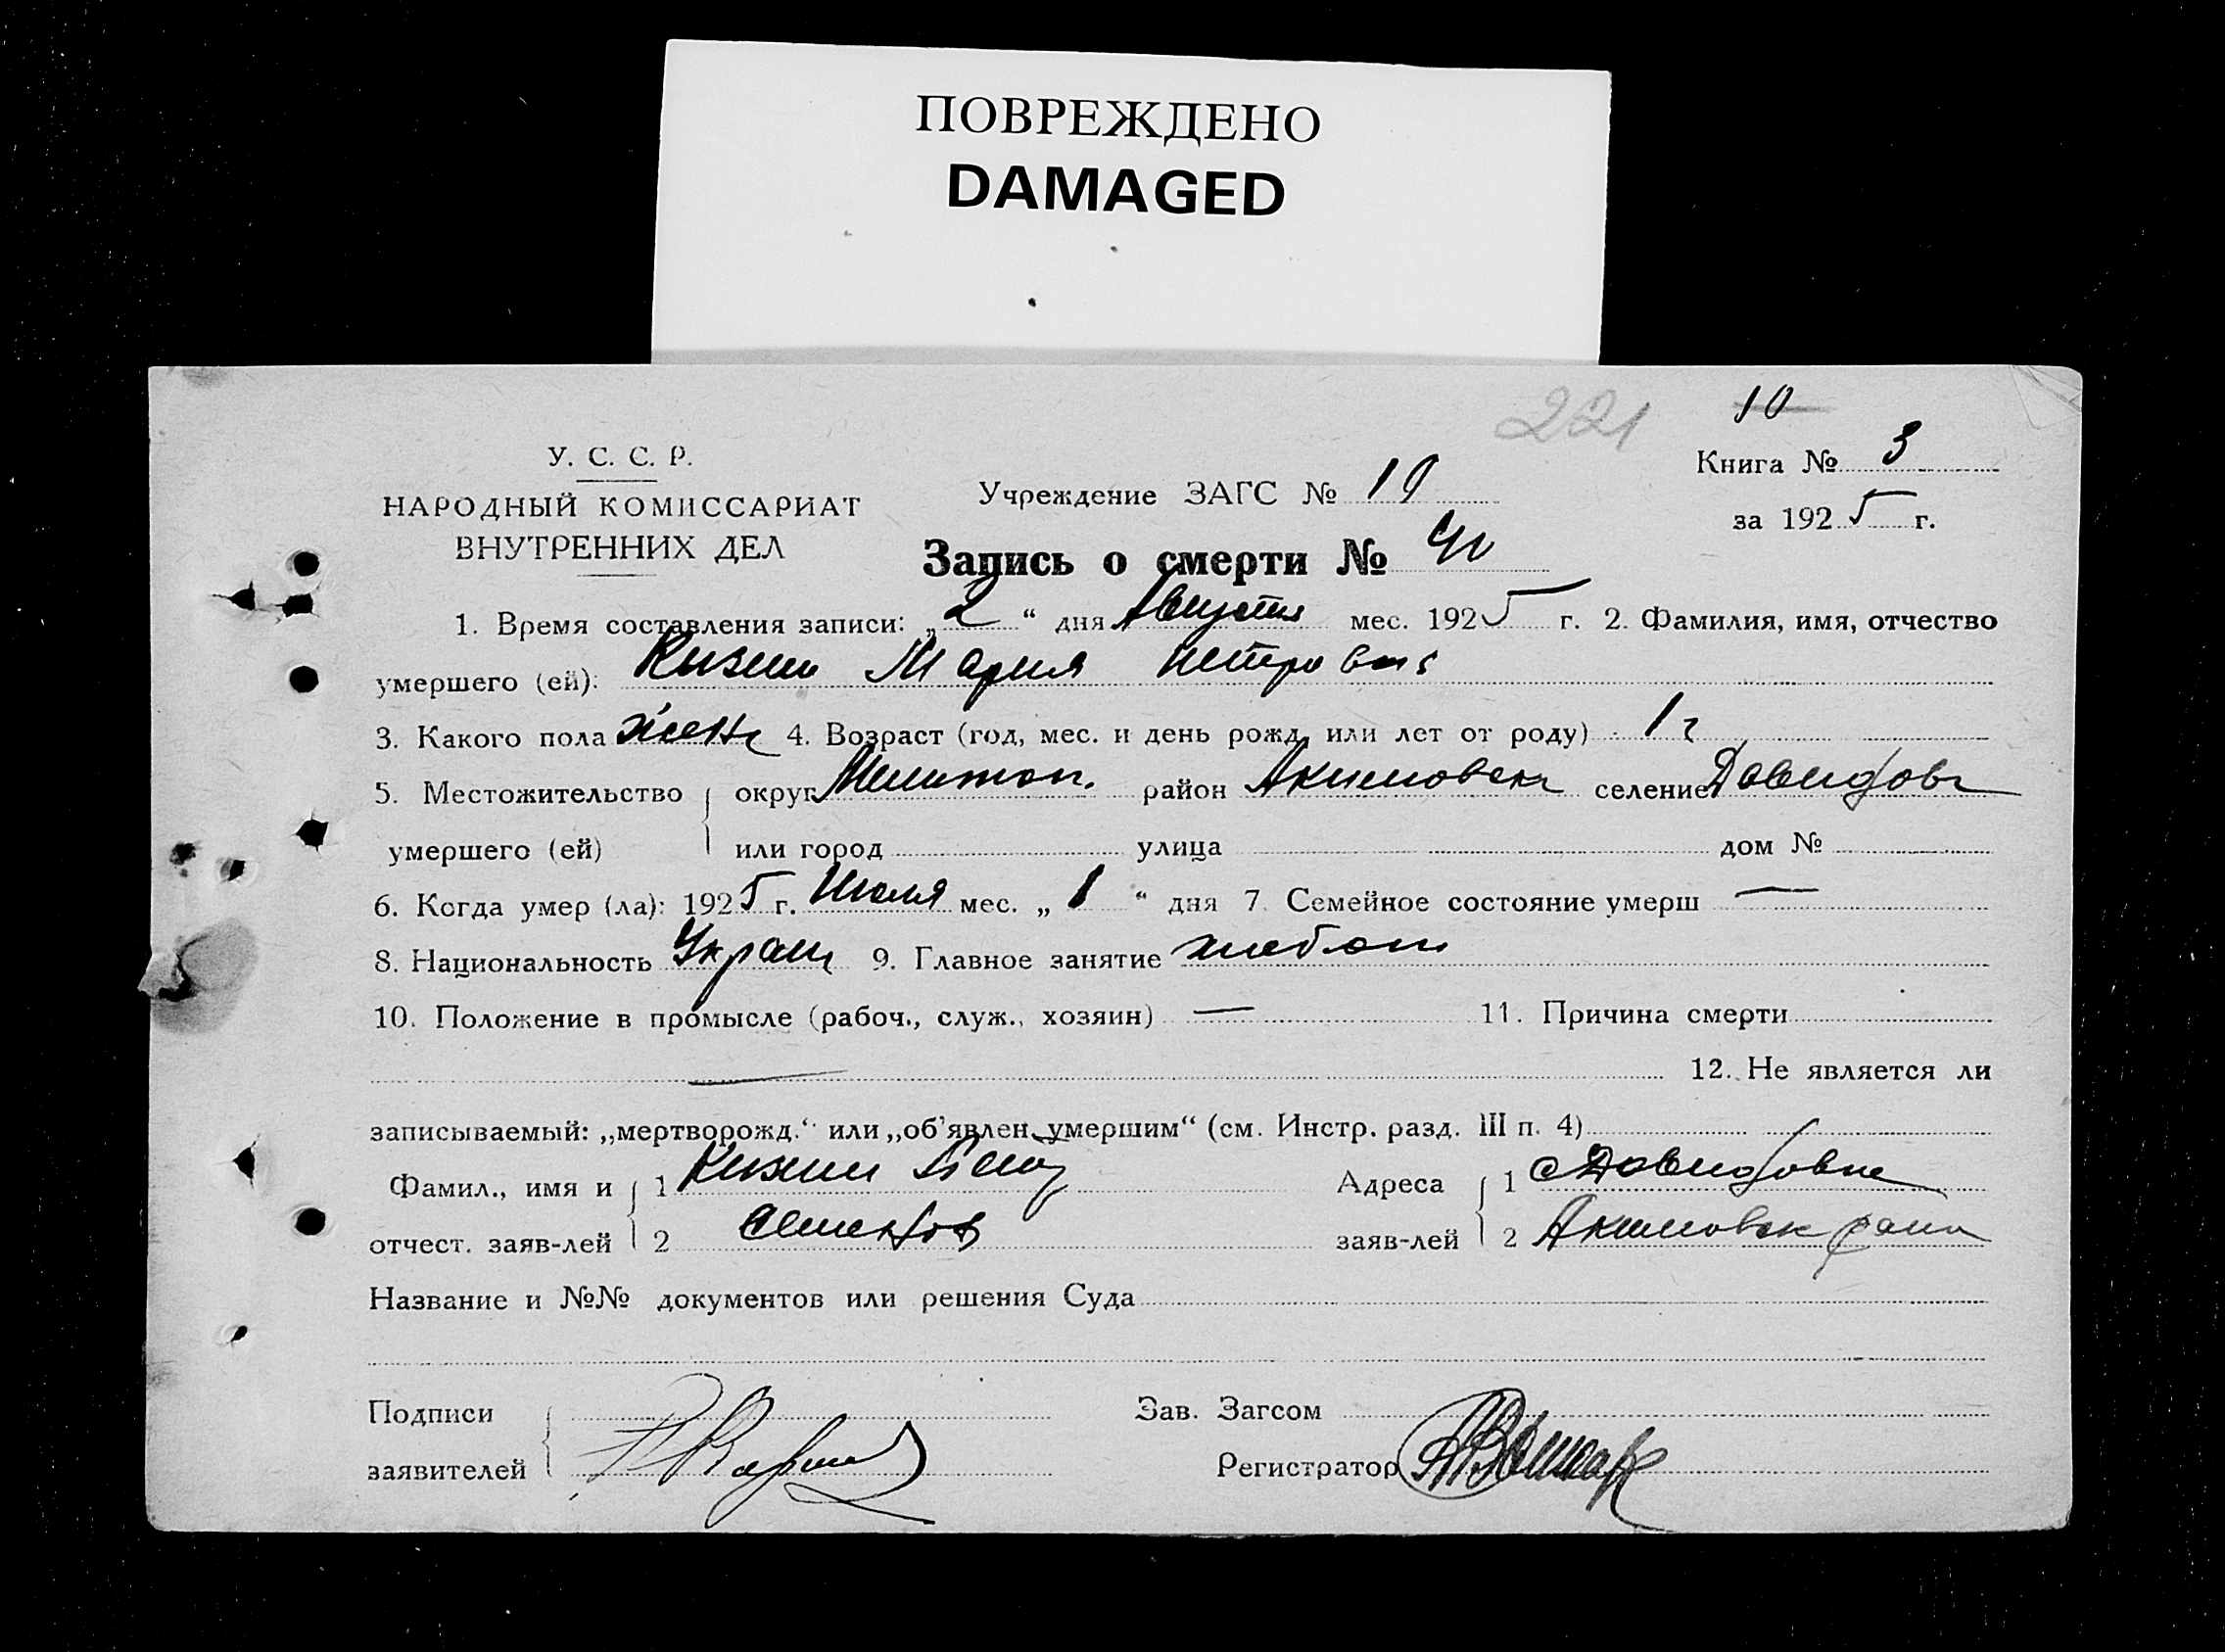 ПОВРЕЖДЕНО
DAMAGED
221 10
У. С. С. Р.
НАРОДНЫЙ КОМИССАРИАТ
ВНУТРЕННИХ ДЕЛ
Учреждение ЗАГС № 19
Книга № 3
за 1925 г.
Запись о смерти №
1. Время составления записи: „2“ дня Августа мес. 1925 г. 2. Фамилия, имя, отчество
умершего (ей): Мария Петровна
3. Какого пола женс 4. Возраст (год, мес. и день рожд. или лет от роду) 1 г
5. Местожительство округ Мелитоп. район Акимовск селение Давидовк
умершего (ей) или город улица дом №
6. Когда умер (ла): 1925 г. Июля мес. „1“ дня 7. Семейное состояние умерш —
8. Национальность Украин 9. Главное занятие хлебоп
10. Положение в промысле (рабоч., служ., хозяин) — 11. Причина смерти
— 12. Не является ли
записываемый: „мертворожд.“ или „об'явлен умершим“ (см. Инстр. разд. III п. 4)
Фамил., имя и 1 Адреса 1 с Давидовка
отчест. заяв-лей 2 заяв-лей 2 Акимовск район
Название и №№ документов или решения Суда
Подписи Зав. Загсом
заявителей Регистратор